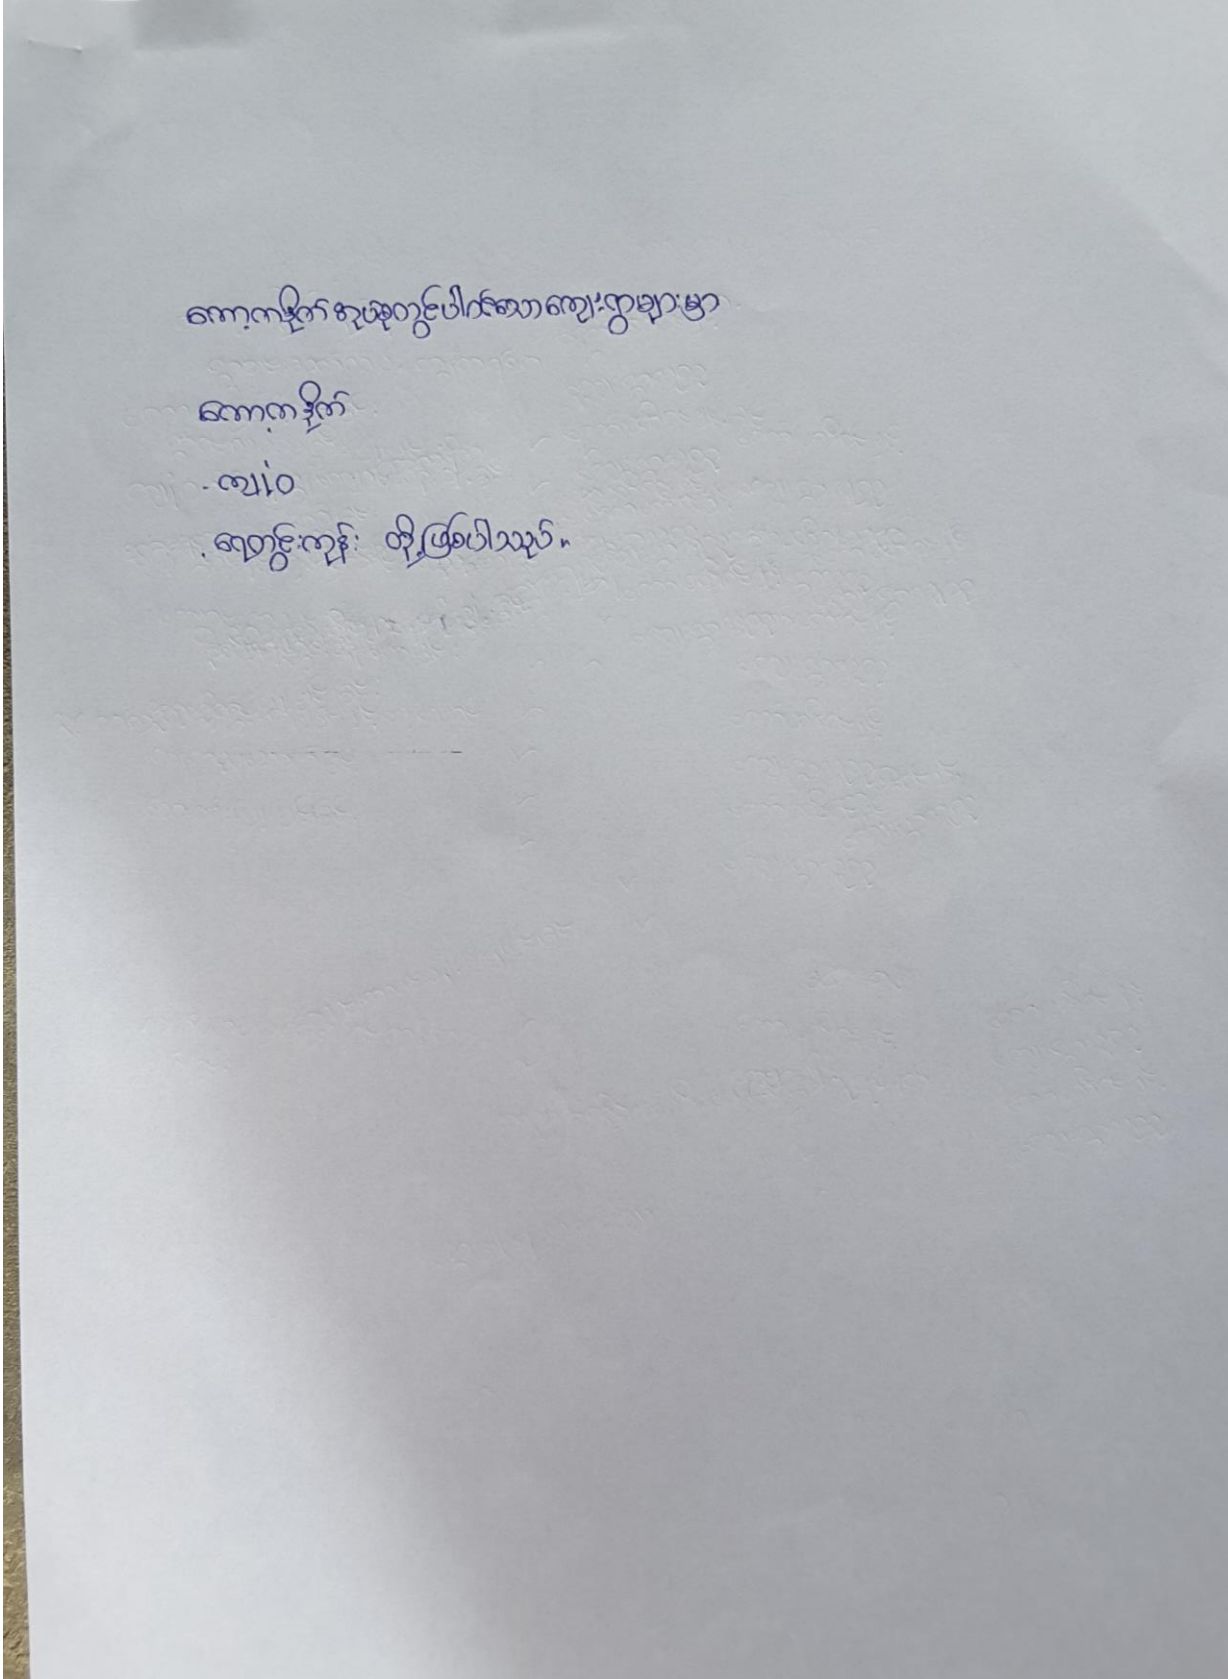 ကော့ကဒိုက်အုပ်စုတွင်ပါဝင်သောကျေးရွာများမှာ
ကော့ကဒိုက်
. ကျုံဝ
. ရေတွင်းကုန်း တို့ဖြစ်ပါသည်။